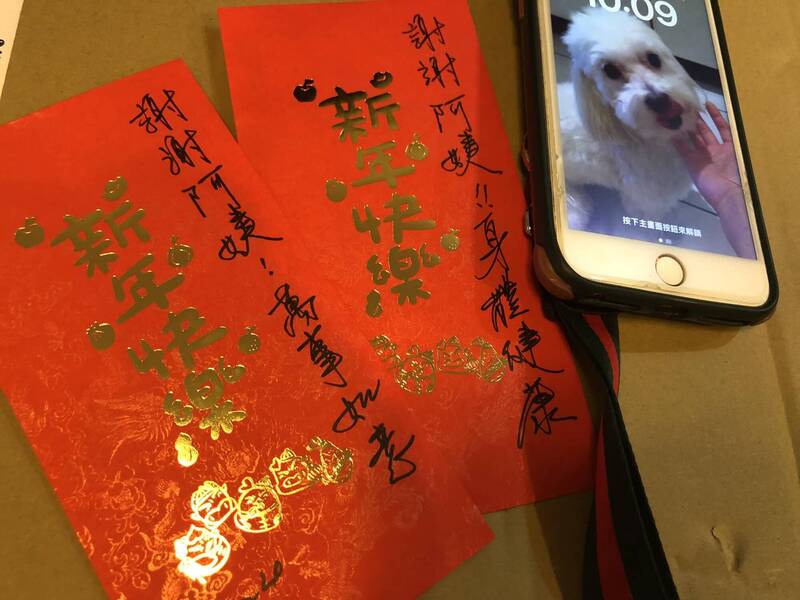 謝謝阿姨！萬事如意
新年快樂
謝謝阿姨！！身體健康
新年快樂
10:09
按下主畫面按鈕來解鎖